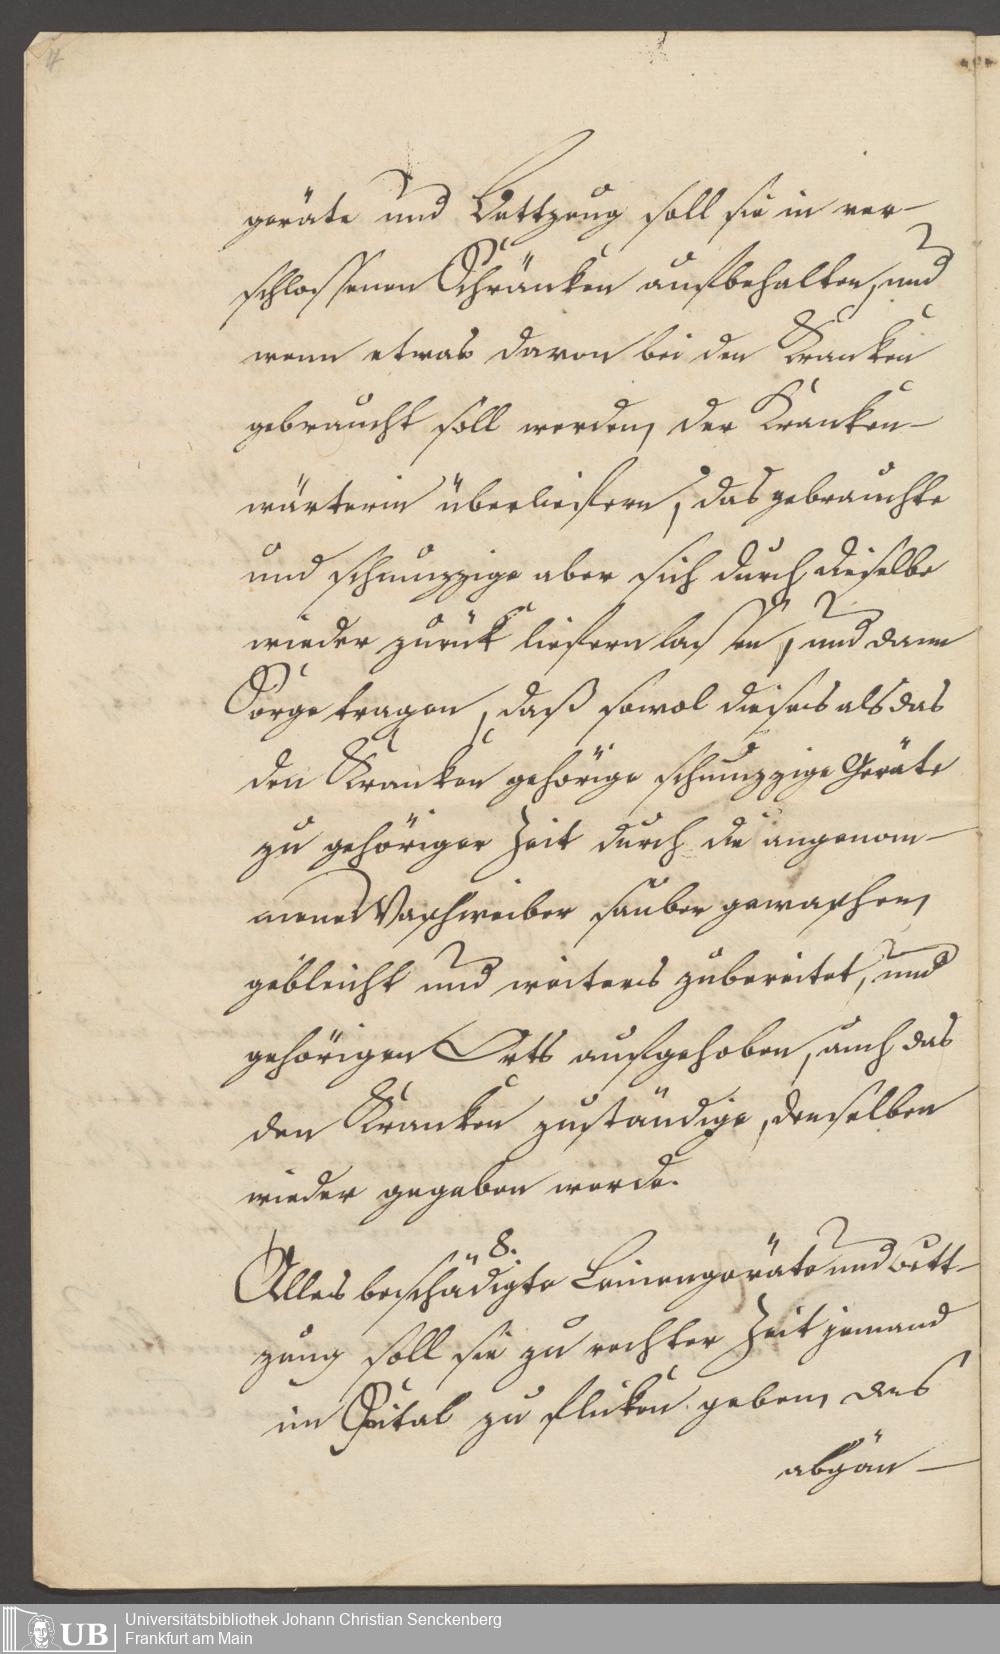 geräte und Bettzeug soll sie in ver-
schlossenen Schränken aufbehalten, und
wenn etwas davon bei den Kranken
gebraucht soll werden, der Kranken-
wärterin überliefern, das gebrauchte
und schmuzzige aber sich durch dieselbe
wieder zurük liefern lassen, und dann
Sorge tragen, daß sowol dieses als das
den Kranken gehörige schmuzzige Geräte
zu gehöriger Zeit durch die angenom-
mene Waschweiber sauber gewaschen,
gebleicht und weiters zubereitet, und
gehörigen Orts aufgehoben, auch das
den Kranken zuständige, denselben
wieder gegeben werde.
8.
Alles beschädigte Leinengeräte und Bett-
zeug soll sie zu rechter Zeit jemand
im Spital zu fliken geben, das
abgän-
Universitätsbibliothek Johann Christian Senckenberg
Frankfurt am Main
UB